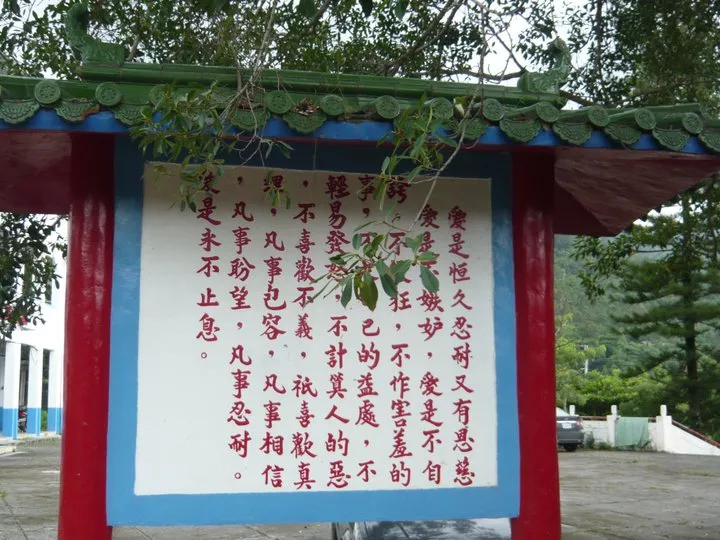 愛是恒久忍耐又有恩慈
愛是不嫉妒，愛是不自
誇。不狂，不作害羞的
事，不己的益處，不
輕易發，不計算人的惡
，不喜歡不義，祇喜歡真
理，凡事包容，凡事相信
，凡事盼望，凡事忍耐。
愛是永不止息。